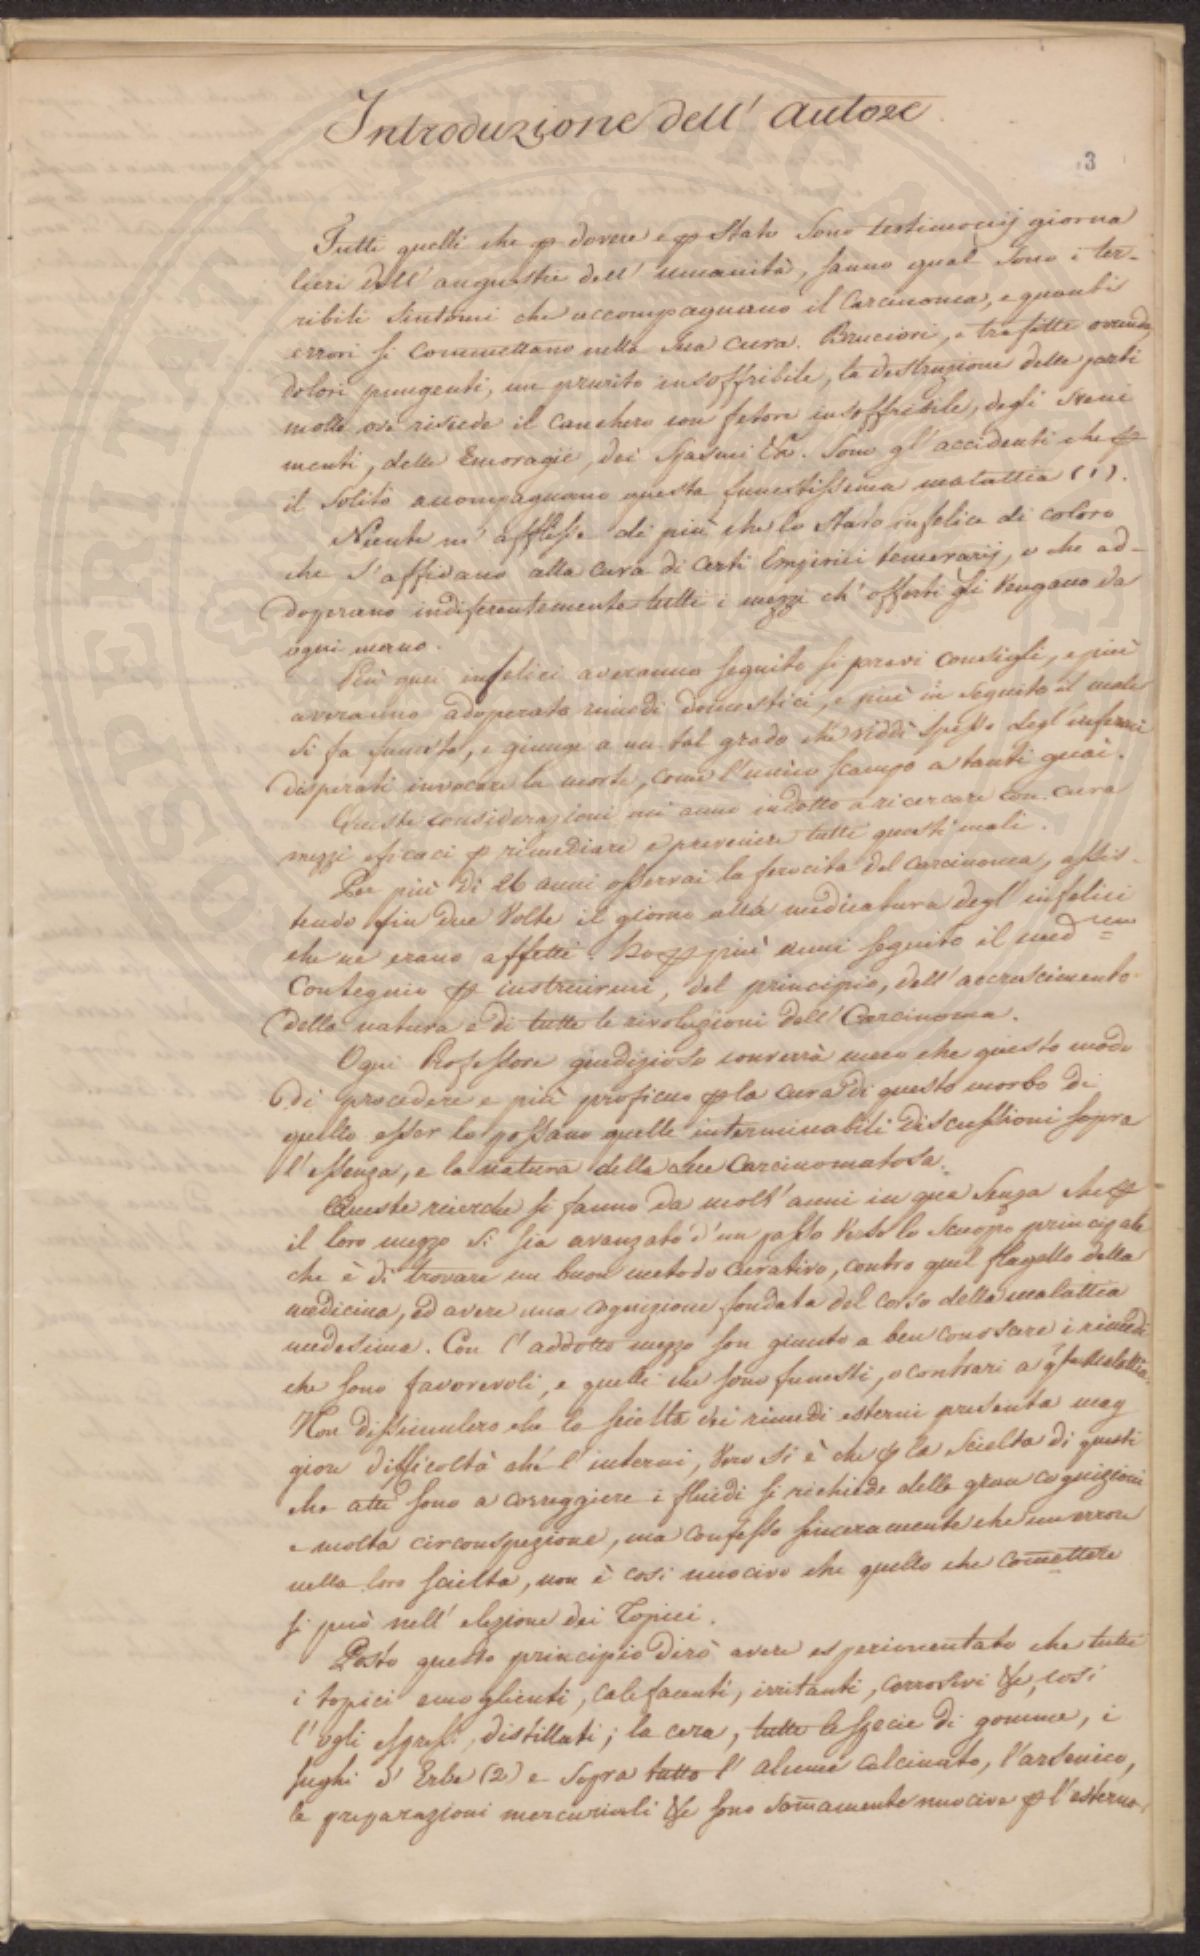 Introduzione dell' Autore
3
Tutti quelli che p dovere e p Stato Sono testimonij giorna
lieri dell' angustie dell' umanità, sanno quali Sono i ter-
ribili Sintomi che accompagnano il Carcinoma, e quanti
errori si commettano nella sua cura. Bruciori, e trafitte orrende,
dolori pungenti, un prurito insoffribile, la destruzione delle parti
molle ove risiede il canchero con fetore insoffribile, degli Sveni
menti, delle Emoragie, dei Spasmi &a. Sono gl' accidenti che p
il solito accompagnano questa funestissima malattia (1).
Niente m' afflisse di più che lo Stato infelice di coloro
che s' affidano alla cura di certi Empirici temerarij, o che ad-
doperano indiferentemente tutti i mezzi ch' offerti gli Vengano da
ogni mano.
Più quei infelici averanno seguito si pravi consigli, e più
averanno adoperato rimedi domestici, e più in seguito il male
si fa funesto, e giunge a un tal grado che viddi spesso degl' infermi
disperati invocare la morte, come l' unico scampo a tanti guai.
Queste considerazioni mi anno indotto a ricercare con cura
mezzi eficaci p rimediare e prevenire tutti questi mali.
Per più di 26 anni osservai la ferocita del carcinoma, assis-
tendo fin due Volte il giorno alla medicatura degl' infelici
che ne erano affetti. Ho p più anni seguito il med.mo
Contegnio p instruirmi, del principio, dell' accrescimento
della natura e di tutte le rivoluzioni dell' Carcinoma.
Ogni Professore giudizioso converrà meco che questo modo
di procedere e più proficuo p la cura di questo morbo di
quello esser lo possano quelle interminabili discussioni sopra
l' essenza, e la natura della lue Carcinomatosa.
Queste ricerche si fanno da molt' anni in qua Senza che p
il loro mezzo si sia avanzato d' un passo Verso lo Scuopo principale
che è di trovare un buon metodo curativo, contro quel flagello della
medicina, ed avere una cognizione fondata del corso della malattia
medesima. Con l' addotto mezzo son giunto a ben conoscere i rimedi
che sono favorevoli, e quelli che sono funesti, o contrari a q.sta Malattia.
Non dissimulero che la scielta dei rimedi esterni presenta mag
giore difficoltà che l' interni, Vero si è che p la Scielta di questi
che atti sono a correggiere i fluidi si richiede delle gran cognizioni
e molta circonspezione, ma confesso sinceramente che un errore
nella loro scielta, non è cosi nuocivo che quello che comettere
si può nell' elezione dei Topici.
Posto questo principio dirò avere esperimentato che tutti
i topici emoglienti, calefacenti, irritanti, corrosivi &c, cosi
l' ogli espressi, distillati; la cera, tutte le specie di gomme, i
sughi d' Erbe (2) e sopra tutto l' alume calcinato, l' arsenico,
le preparazioni mercuriali &c sono somamente nuocive p l' esterno,